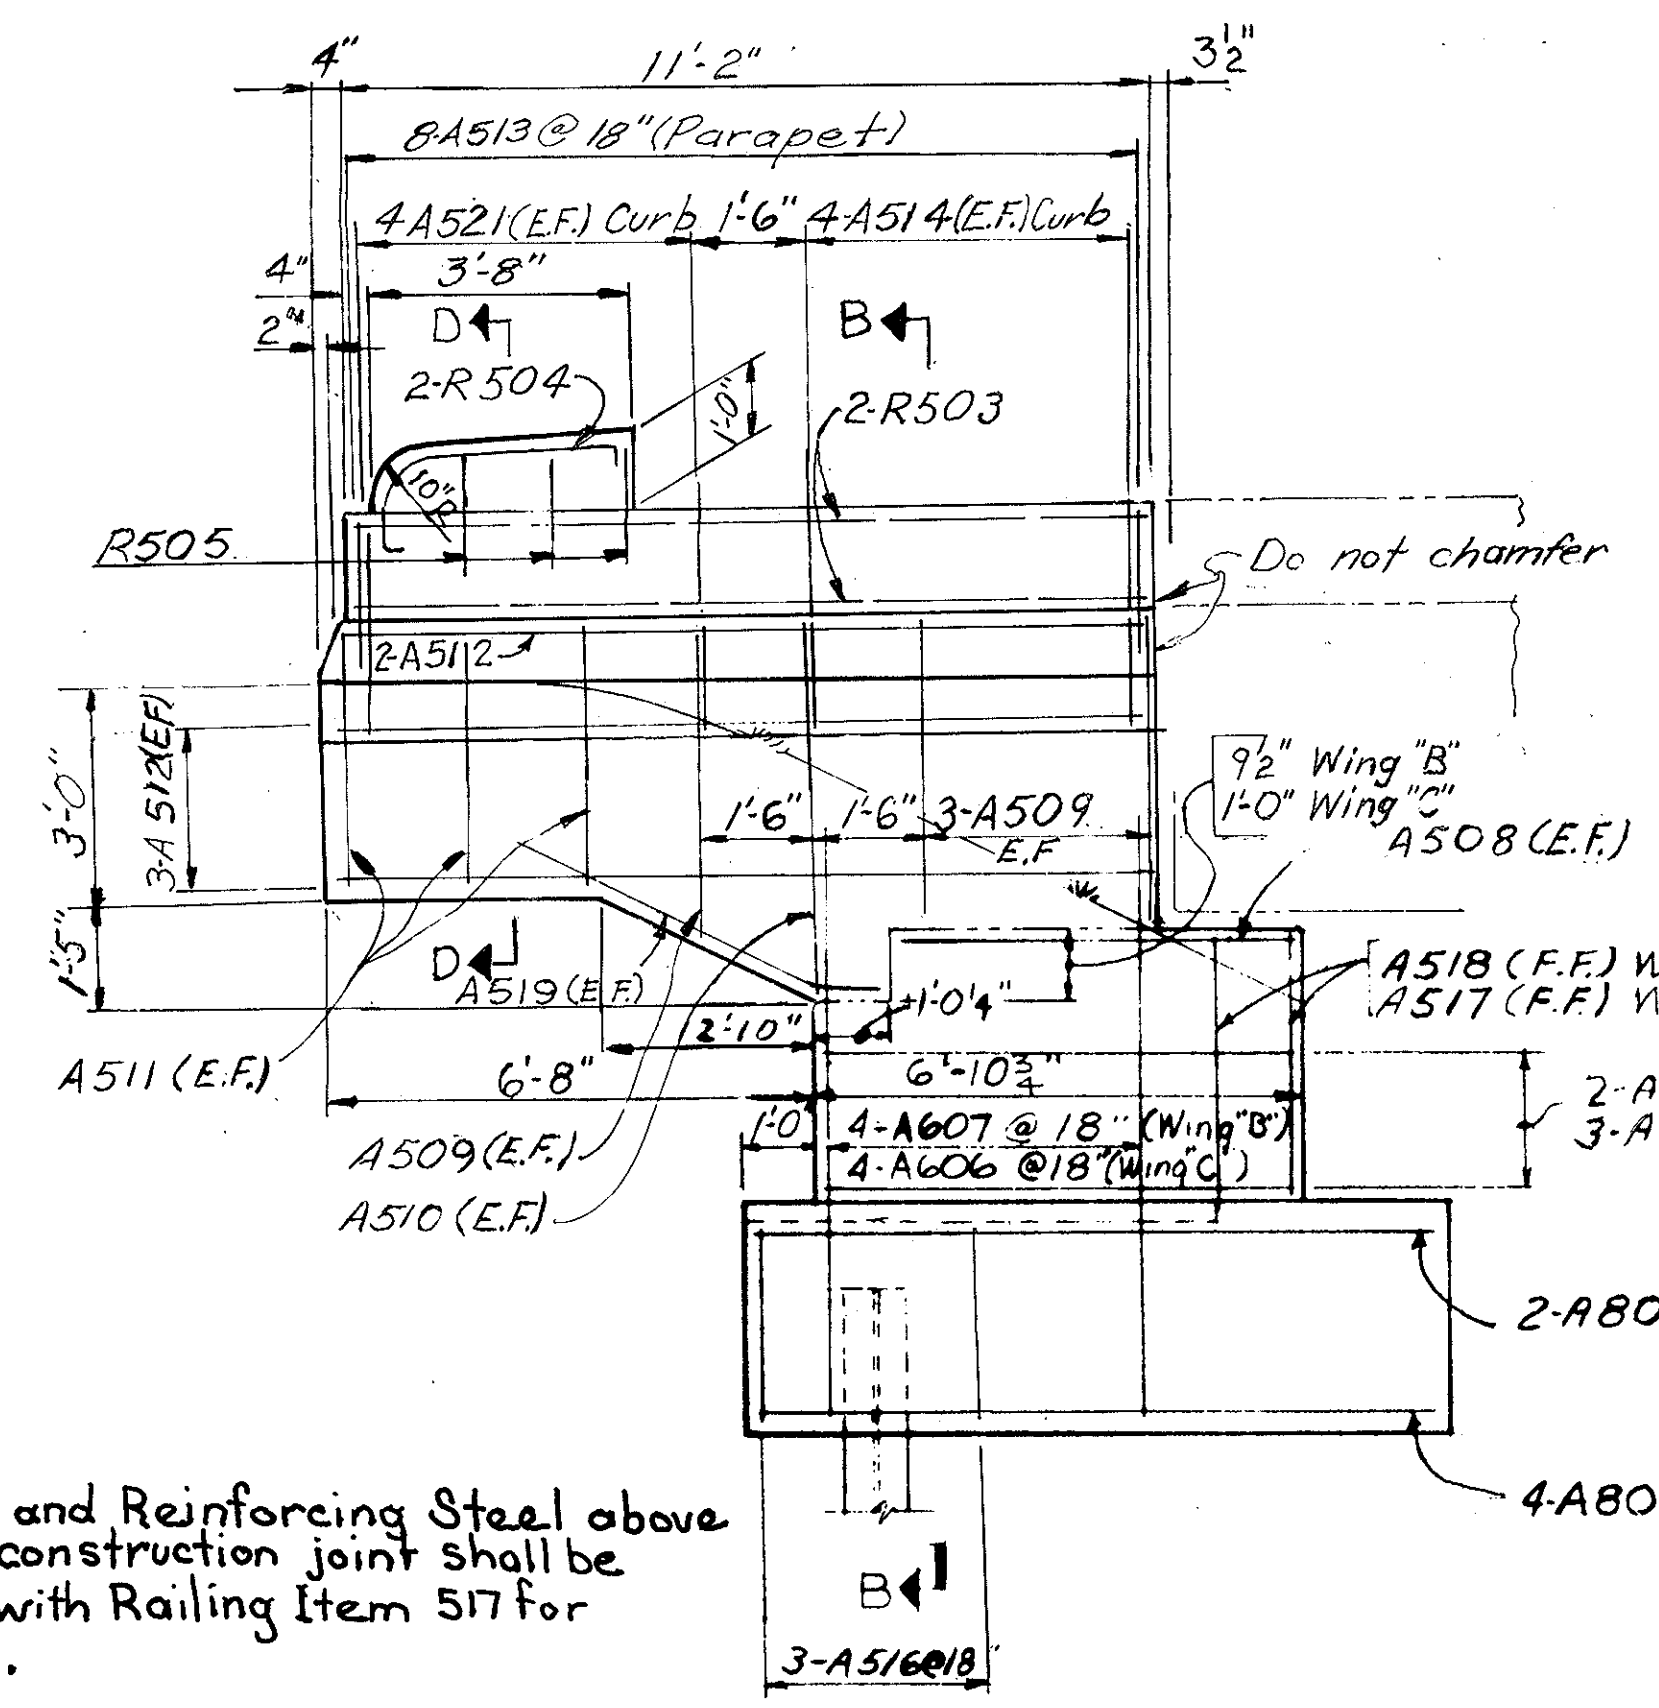 4" 11'-2" 3½"
8-A513 @ 18" (Parapet)
4-A521 (E.F.) Curb 1'-6" 4-A514 (E.F.) Curb
4" 3'-8"
2"
D B
2-R504 1'-0" 2-R503
10"R
R505 Do not chamfer
2-A512
3'-0" 3-A512(E.F)
9½" Wing "B"
1'-0" Wing "C"
1'-6" 1'-6" 3-A509
E.F
A508 (E.F.)
1'-5"
D
A519 (E.F.)
1'-0¼"
A518 (F.F.) W
A517 (F.F.) W
2'-10"
A511 (E.F.) 6'-8" 6'-10¾"
2-A
3-A
1'-0 4-A607 @ 18" (Wing "B")
4-A606 @ 18" (Wing "C")
A509 (E.F.)
A510 (E.F.)
2-A80
4-A80
and Reinforcing Steel above
construction joint shall be
with Railing Item 517 for
.
B
3-A516@18"